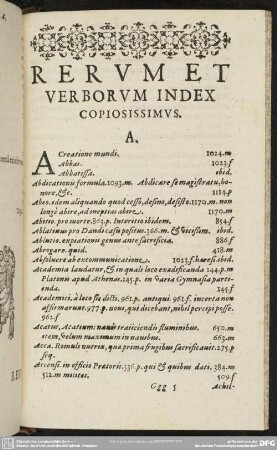 RERVM ET
VERBORVM INDEX
COPIOSISSIMVS.
A.
A Creatione mundi. 1024.m
Abbas. 1023.f
Abbatissa. ibid.
Abdicationis formula. 1093.m. Abdicare se magistratu, ho-
nore, &c. 1184.p
Abes. idem aliquando quod cesso, desino, desiste. 1170.m. non
longè abire, ad ineptias abire. 1170.m
Abitio pro morte. 863.p. Interitio ibidem. 854.f
Ablatiuus pro Dandi casu positus. 366.m. & vicissim. ibid.
Ablutio, expiationis genus ante sacrificia. 886.f
Abrogare. quid. 418.m
Absoluere ab excommunicatione. 1023.f. haeresi. ibid.
Academia laudatur, & in quali loco exaedificanda. 144.p.m
Platonis apud Athenas. 145.p. in varia Gymnasia parti-
enda. 145.f
Academici, à loco sic dicti. 961.p. antiqui. 961.f. incerta non
affirmarunt. 977.p. noui, qui dicebant, nihil percipi posse.
962.f
Acatus, Acatium: nauis traiiciendi fluminibus. 650.m
item, velum maximum in nauibus. 663.m
Acca. Romuli nutrix, quae prima frugibus sacrificauit. 275.p
seq.
Accensi. in officio Praetoris. 336.p. qui & quibus dati. 384.m
512.m milites. 509.f
Ggg 5 Achil-